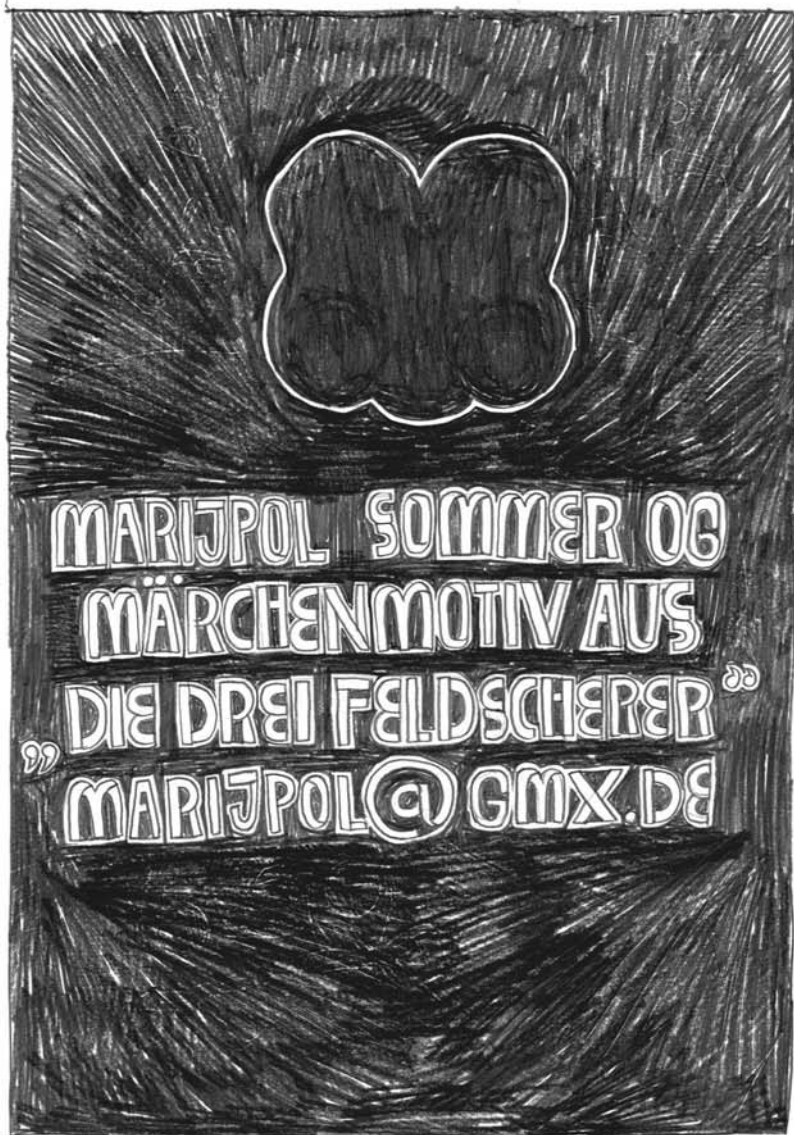 MARIJPOL SOMMER 06
MÄRCHENMOTIV AUS
„DIE DREI FELDSCHERER“
MARIJPOL@GMX.DE